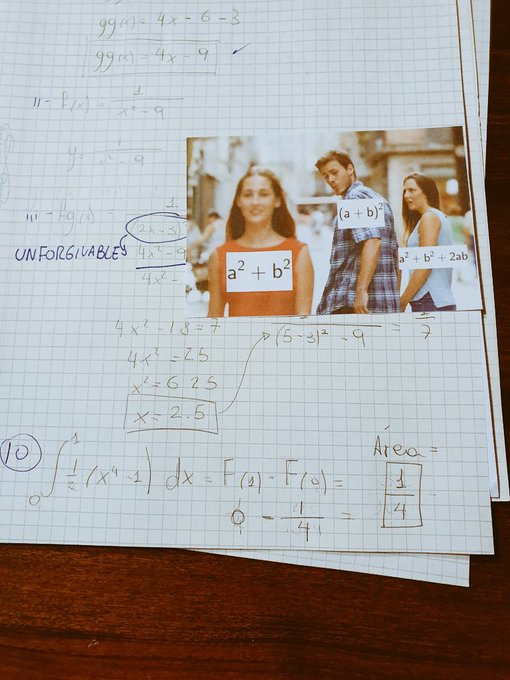 gg(x) = 4x - 6 - 3
gg(x) = 4x - 9 ✓
ii- f(x) = 1/(x² - 9)
y = 1/(x² - 9)
iii- fg(x)
1
(2x-3)
UNFORGIVABLES
4x² - 9
4x² -
(a + b)²
a² + b²
a² + b² + 2ab
4x² - 18 = 7
(5-3)² - 9 = 1/7
4x² = 25
x² = 6 25
x = 2.5
10
∫₀¹ 1/2 (x⁴ - 1) dx = F(1) - F(0) =
Área =
1/4